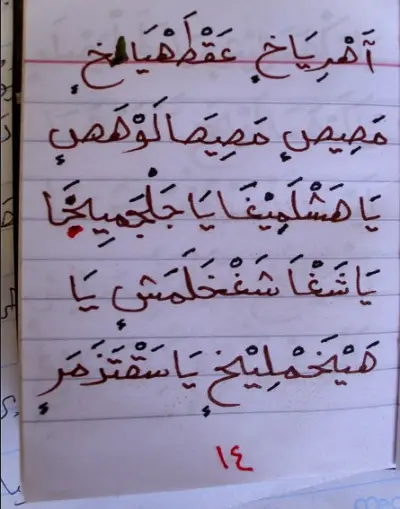 آهْرِيَاخٍ عَقْطَهْيَالخٍ
مَصِيصٍ مَصِيَصَالَوْهَصٍ
يَا هَشْلَمِيْغَا يَا جَلْجَمِيلَخَا
يَا شَغْاَ شَغْخَلَمَشٍ يَا
هَيْخَمْلِيْخٍ يَا سَقْتَزْمَرٍ
١٤